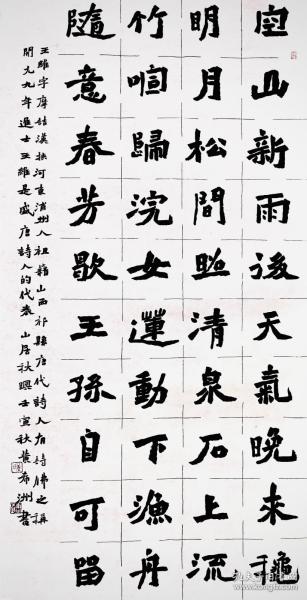 空山新雨後天氣晚來穐
明月松間照清泉石上流
竹喧歸浣女蓮動下漁舟
隨意春芳歇王孫自可留
王維字摩詰漢族河東蒲州人祖籍山西祁縣唐代詩人有詩佛之稱
開元九年進士王維是盛唐詩人的代表 山居秋暝 壬寅秋黄希洲書